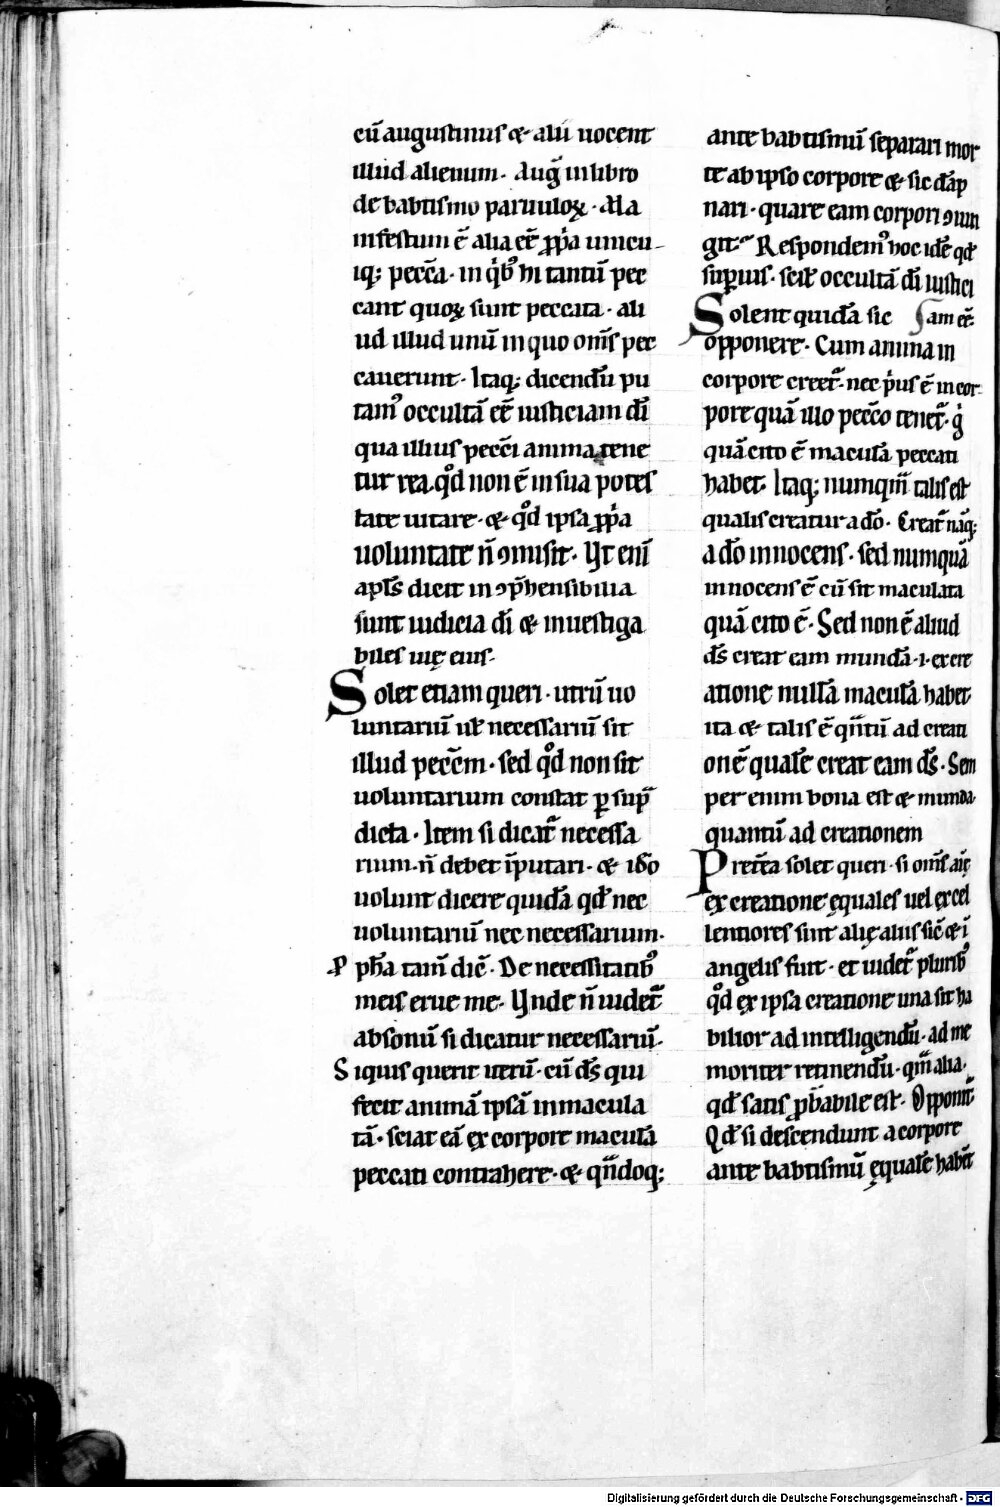 cū augustinus & alii uocent
illud alienum. Aug̃ in libro
de babtismo paruuloꝝ. Alia
infestum ē alia eē ꝓpͥa unicu-
iq; peccͣa. in qͥbꝰ ñ tantū pec
cant quoꝝ sunt peccata. ali
ud illud unū in quo om̄s pec
cauerunt. Itaq; dicendū pu
tamꝰ occultā eē iusticiam dī
qua illius pecc̄i anima tene
tur rea. qd̓ non ē in sua potes
tate uitare. & qd̓ ipsa ꝓpͥa
uoluntate ñ ꝯmisit. Vt enī
apl̄s dicit inꝯp̄hensibilia
sunt iudicia dī & inuestiga
biles uię eius.
Solet etiam queri. utrū uo
luntariū ul̄ necessariū sit
illud pecc̄m. sed qd̓ non sit
uoluntarium constat ꝑ sup̄
dicta. Item si dicat᷑ necessa
rium. ñ debet īputari. & ido
uolunt dicere quidā qd̄ nec
uoluntariū nec necessarium.
Pph̄a tam̄ dic̄. De necessitatibꝰ
meis erue me. Vnde ñ uidet᷑
absonū si dicatur necessariū.
Siquis querit utrū. cū ds̄ qui
fecit animā ipsā inmacula
tā. sciat eā ex corpore maculā
peccati contrahere. & qn̄doq;
ante babtismū separari mor
te ab ipso corpore & sic dāp
nari. quare eam corpori ꝯiun
git. Respondemꝰ hoc idē qd̄
superius. scil̄ occultā dī iustici
Solent quidā sic am eē.
opponere. Cum anima in
corpore creet᷑. nec pͥus ē in cor
pore quā illo pecc̄o tenet᷑. gͥ
quā cito ē maculā peccati
habet. Itaq; numqm̄ talis est
qualis creatur a dō. Creat᷑ nāq;
a dō innocens. sed numquā
innocens ē cū sit maculata
quā cito ē. Sed non ē aliud
ds̄ creat eam mundā .i. ex cre
atione nullā maculā habet
ita & talis ē qn̄tū ad creati
onē qualē creat eam ds̄. Sem
per enim bona est & munda.
quantū ad creationem
Pretea solet queri. si om̄s aīę
ex creatione ęquales uel excel
lentiores sint alię aliis sic̄ & ī
angelis fuit. et uidet᷑ pluribꝰ
qd̓ ex ipsa creatione una sit ha
bilior ad intelligendū. ad me
moriter retinendū. qm̄ alia.
qd̄ satis ꝓbabile est. Opponit᷑
Qd̄ si descendunt a corpore
ante babtismū ęqualē habēt
Digitalisierung gefördert durch die Deutsche Forschungsgemeinschaft - DFG